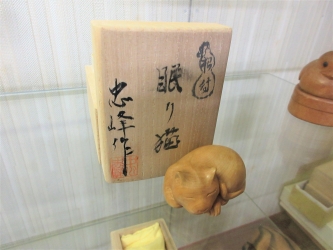 眠り猫
忠峰作